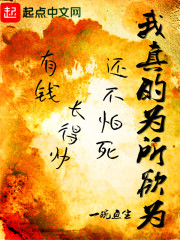 起点
起点中文网
我真的为所欲为
还不怕死
长得帅
有钱
一碗鱼生